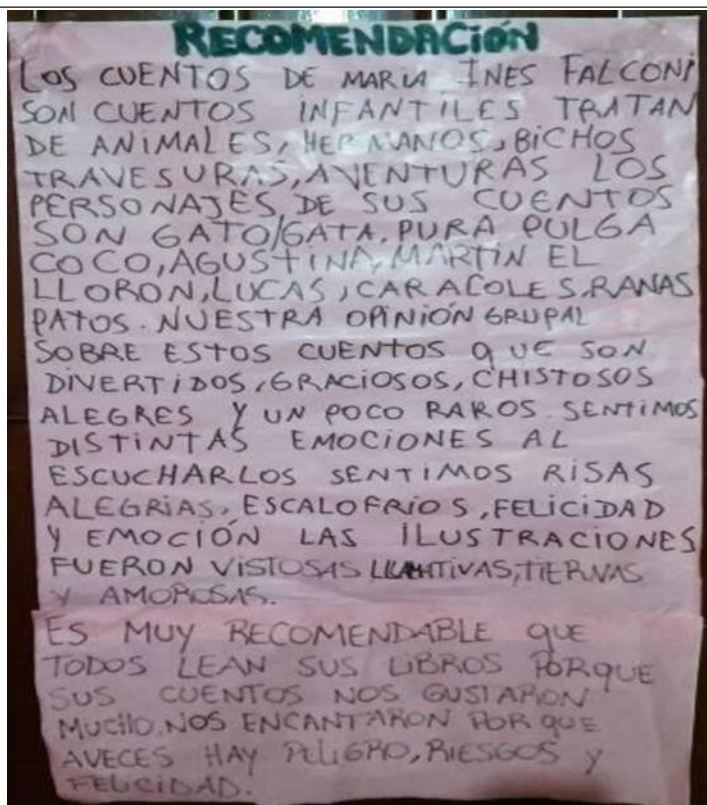 RECOMENDACIÓN
LOS CUENTOS DE MARIA INES FALCONI
SON CUENTOS INFANTILES TRATAN
DE ANIMALES, HERMANOS, BICHOS
TRAVESURAS, AVENTURAS LOS
PERSONAJES DE SUS CUENTOS
SON GATO/GATA, PURA PULGA
COCO, AGUSTINA, MARTIN EL
LLORON, LUCAS, CARACOLES, RANAS
PATOS. NUESTRA OPINIÓN GRUPAL
SOBRE ESTOS CUENTOS QUE SON
DIVERTIDOS, GRACIOSOS, CHISTOSOS
ALEGRES Y UN POCO RAROS. SENTIMOS
DISTINTAS EMOCIONES AL
ESCUCHARLOS SENTIMOS RISAS
ALEGRIAS, ESCALOFRIOS, FELICIDAD
Y EMOCIÓN LAS ILUSTRACIONES
FUERON VISTOSAS LLAMATIVAS, TIERNAS
Y AMOROSAS.
ES MUY RECOMENDABLE QUE
TODOS LEAN SUS LIBROS PORQUE
SUS CUENTOS NOS GUSTARON
MUCHO. NOS ENCANTARON PORQUE
AVECES HAY PELIGRO, RIESGOS Y
FELICIDAD.